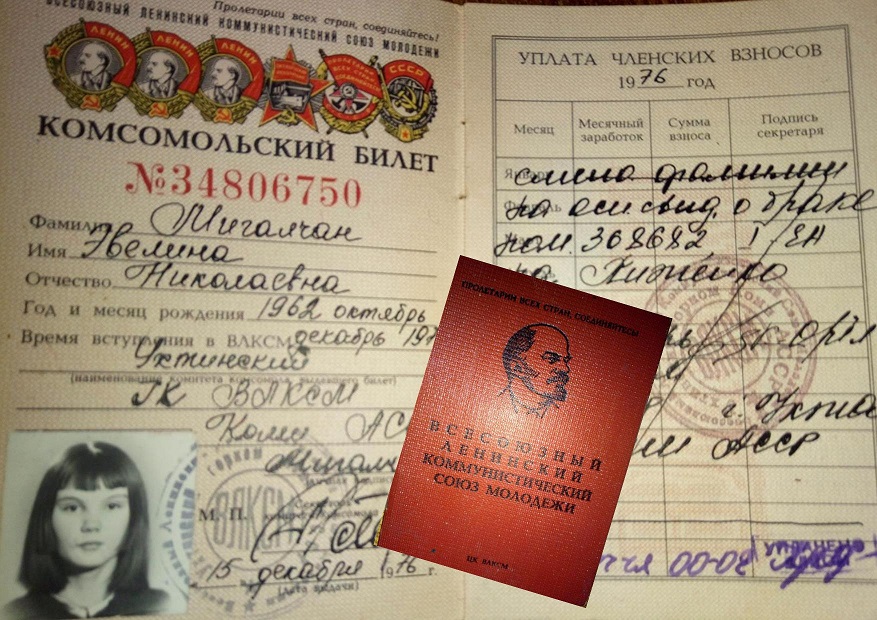 Пролетарии всех стран, соединяйтесь!
ВСЕСОЮЗНЫЙ ЛЕНИНСКИЙ КОММУНИСТИЧЕСКИЙ СОЮЗ МОЛОДЕЖИ
ЛЕНИН ЛЕНИН ЛЕНИН СССР
КОМСОМОЛЬСКИЙ БИЛЕТ
№34806750
Фамилия Мигалчан
Имя Эвелина
Отчество Николаевна
Год и месяц рождения 1962 октябрь
Время вступления в ВЛКСМ декабрь 197
Ухтинский
(наименование комитета комсомола, выдавшего билет)
ГК ВЛКСМ
Коми АС
М. П.
ВЛКСМ
15 декабря 1976 г.
(дата выдачи)
УПЛАТА ЧЛЕНСКИХ ВЗНОСОВ
1976 год
Месяц Месячный заработок Сумма взноса Подпись секретаря
смена фамилии
на осн. свид. о браке
ном. 368682 I ЕН
на Хиженко
г. Ухта
АССР
ПРОЛЕТАРИИ ВСЕХ СТРАН, СОЕДИНЯЙТЕСЬ!
ВСЕСОЮЗНЫЙ
ЛЕНИНСКИЙ
КОММУНИСТИЧЕСКИЙ
СОЮЗ МОЛОДЕЖИ
ЦК ВЛКСМ